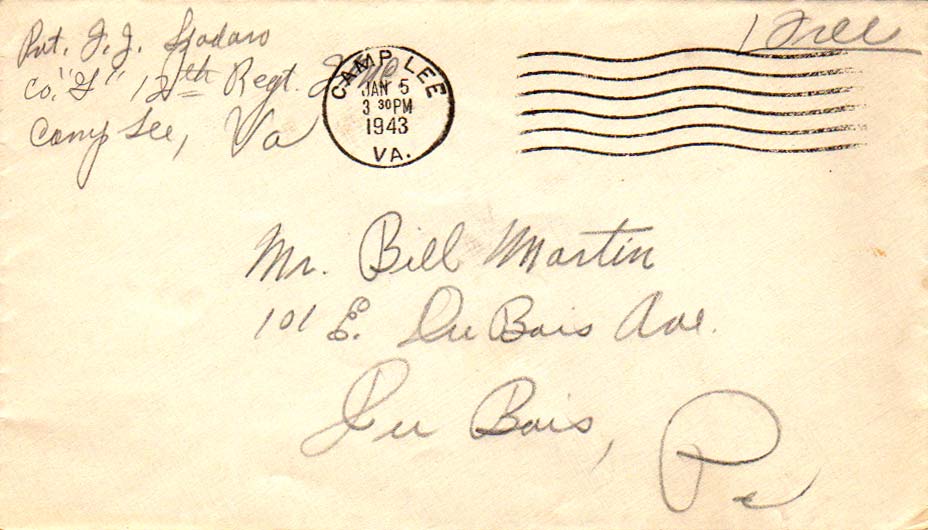 Pvt. J. J. Spadaro
Free
Co. "G" 12th Regt.
Camp Lee, Va
CAMP LEE
JAN 5
3 30 PM
1943
VA.
Mr. Bill Martin
101 E. Du Bois Ave.
Du Bois, Pa